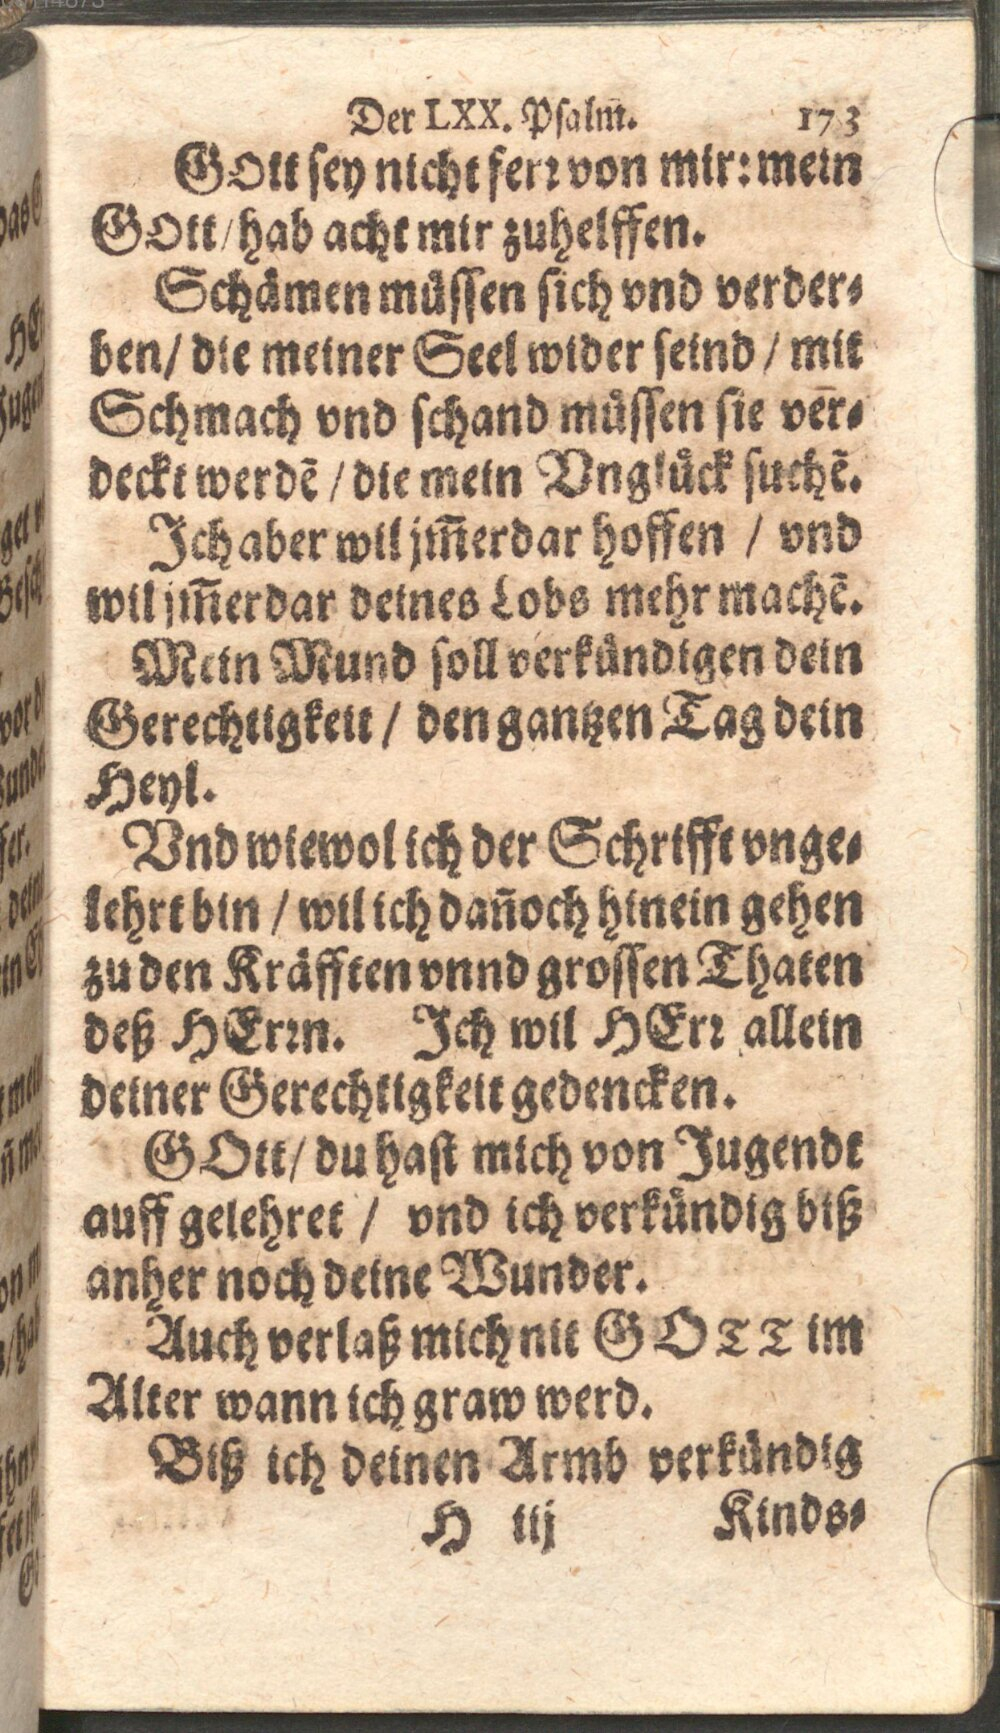 Der LXX. Psalm̃. 173
GOtt sey nicht ferꝛ von mir: mein
GOtt/ hab acht mir zuhelffen.
Schämen müssen sich vnd verder⸗
ben/ die meiner Seel wider seind / mit
Schmach vnd schand müssen sie ver̃⸗
deckt werdẽ / die mein Vnglück suchẽ.
Ich aber wil jm̃erdar hoffen / vnd
wil jm̃erdar deines Lobs mehr machẽ.
Mein Mund soll verkündigen dein
Gerechtigkeit / den gantzen Tag dein
Heyl.
Vnd wiewol ich der Schrifft vnge⸗
lehrt bin / wil ich dañoch hinein gehen
zu den Kräfften vnnd grossen Thaten
deß HErꝛn. Ich wil HErꝛ allein
deiner Gerechtigkeit gedencken.
GOtt/ du hast mich von Jugendt
auff gelehret / vnd ich verkündig biß
anher noch deine Wunder.
Auch verlaß mich nit GOTT im
Alter wann ich graw werd.
Biß ich deinen Armb verkündig
H iij Kinds⸗